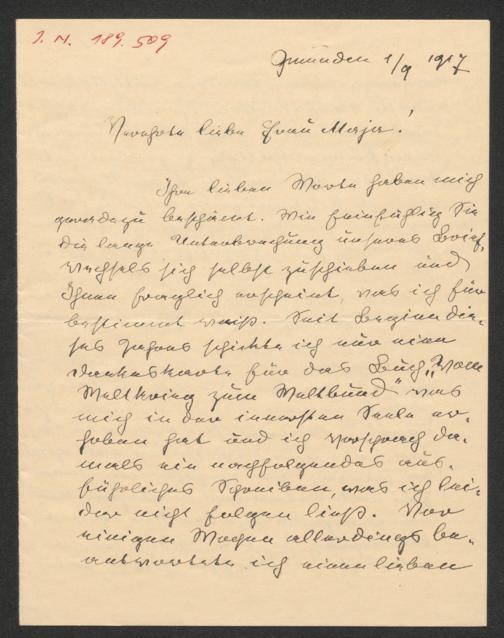 J. N. 189.509
Gmunden 1/9 1917
Verehrte liebe Frau Maja!
Ihre lieben Worte haben mich
geradezu beschämt. Wie feinfühlig Sie
die lange Unterbrechung unseres Brief-
wechsels sich selbst zuschieben und
Ihnen fraglich erscheint, was ich für
bestimmt weiß. Seit Beginn die-
ses Jahres schickte ich nur eine
Dankeskarte für das Buch "Vom
Weltkrieg zum Weltbund" was
mich in der innersten Seele er-
hoben hat und ich versprach da-
mals ein nachfolgendes aus-
führliches Schreiben, was ich lei-
der nicht folgen ließ. Vor
einigen Wochen allerdings be-
antwortete ich einen lieben